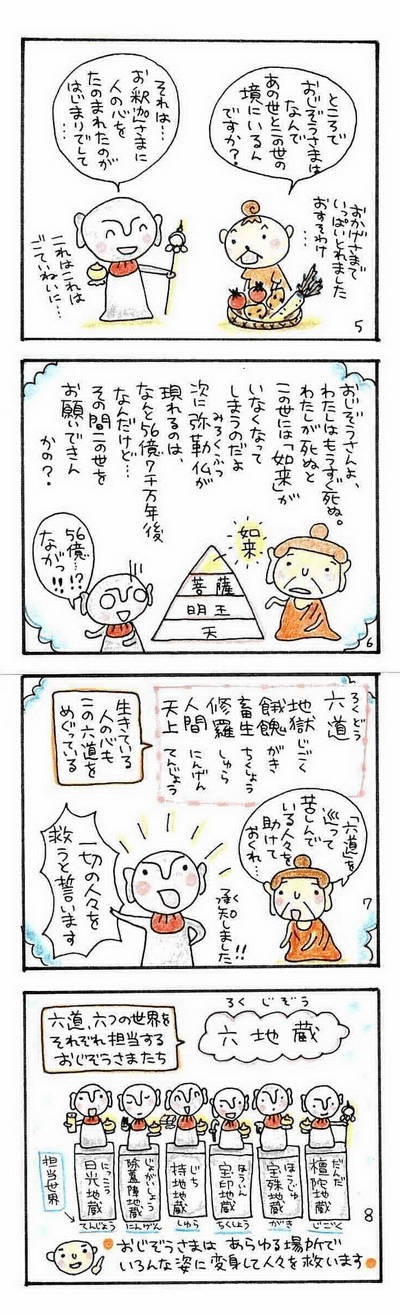 ところで
おじぞうさまは
なんで
あの世とこの世の
境にいるん
ですか?
おかげさまで
いっぱいとれました
おすそわけ
…
それは…
お釈迦さまに
人の心を
たのまれたのが
はじまりでして
…
これはこれは
ごていねいに…
5
おじぞうさんよ、
わたしはもうすぐ死ぬ。
わたしが死ぬと
この世には「如来」が
いなくなって
しまうのだよ
次に弥勒仏が
みろくぶつ
現れるのは、
なんと56億7千万年後
なんだけど…
その間この世を
お願いできん
かの?
如来
菩薩
明王
天
56億…!?
ながっ!!
6
六道
ろくどう
地獄 じごく
餓鬼 がき
畜生 ちくしょう
修羅 しゅら
人間 にんげん
天上 てんじょう
生きている
人の心も
この六道を
めぐっている
「六道」を
巡って
苦しんで
いる人々を
助けて
おくれ…
承知しました!!
一切の人々を
救うと誓います
7
ろく じぞう
六地蔵
六道、六つの世界を
それぞれ担当する
おじぞうさまたち
檀陀地蔵 だんだ
宝珠地蔵 ほうじゅ
宝印地蔵 ほういん
持地地蔵 じち
除蓋障地蔵 じょがいしょう
日光地蔵 にっこう
担当世界
じごく
がき
ちくしょう
しゅら
にんげん
てんじょう
8
おじぞうさまは あらゆる場所で
いろんな姿に変身して人々を救います